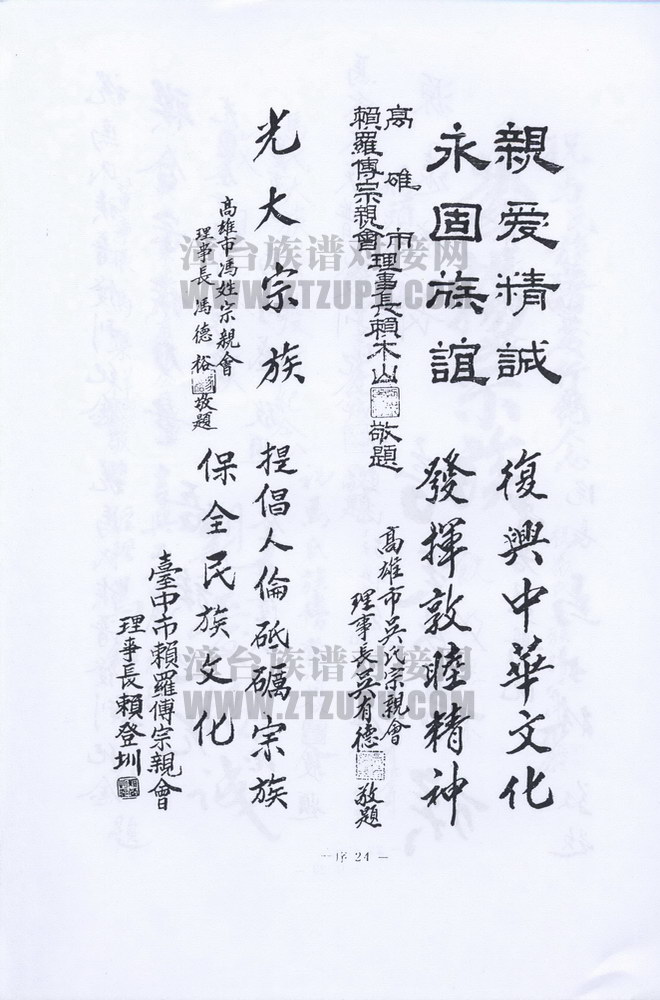 親爱精誠
永固族誼
高雄市
賴羅傅宗親會理事長賴木山敬題
復興中華文化
發揮敦睦精神
高雄市吳氏宗親會
理事長吳有德敬題
光大宗族
高雄市馮姓宗親會
理事長馮德裕敬題
提倡人倫砥礪宗族
保全民族文化
臺中市賴羅傅宗親會
理事長賴登圳
漳台族谱对接网
WWW.ZTZUPU.COM
漳台族谱对接网
WWW.ZTZUPU.COM
— 序 24 —